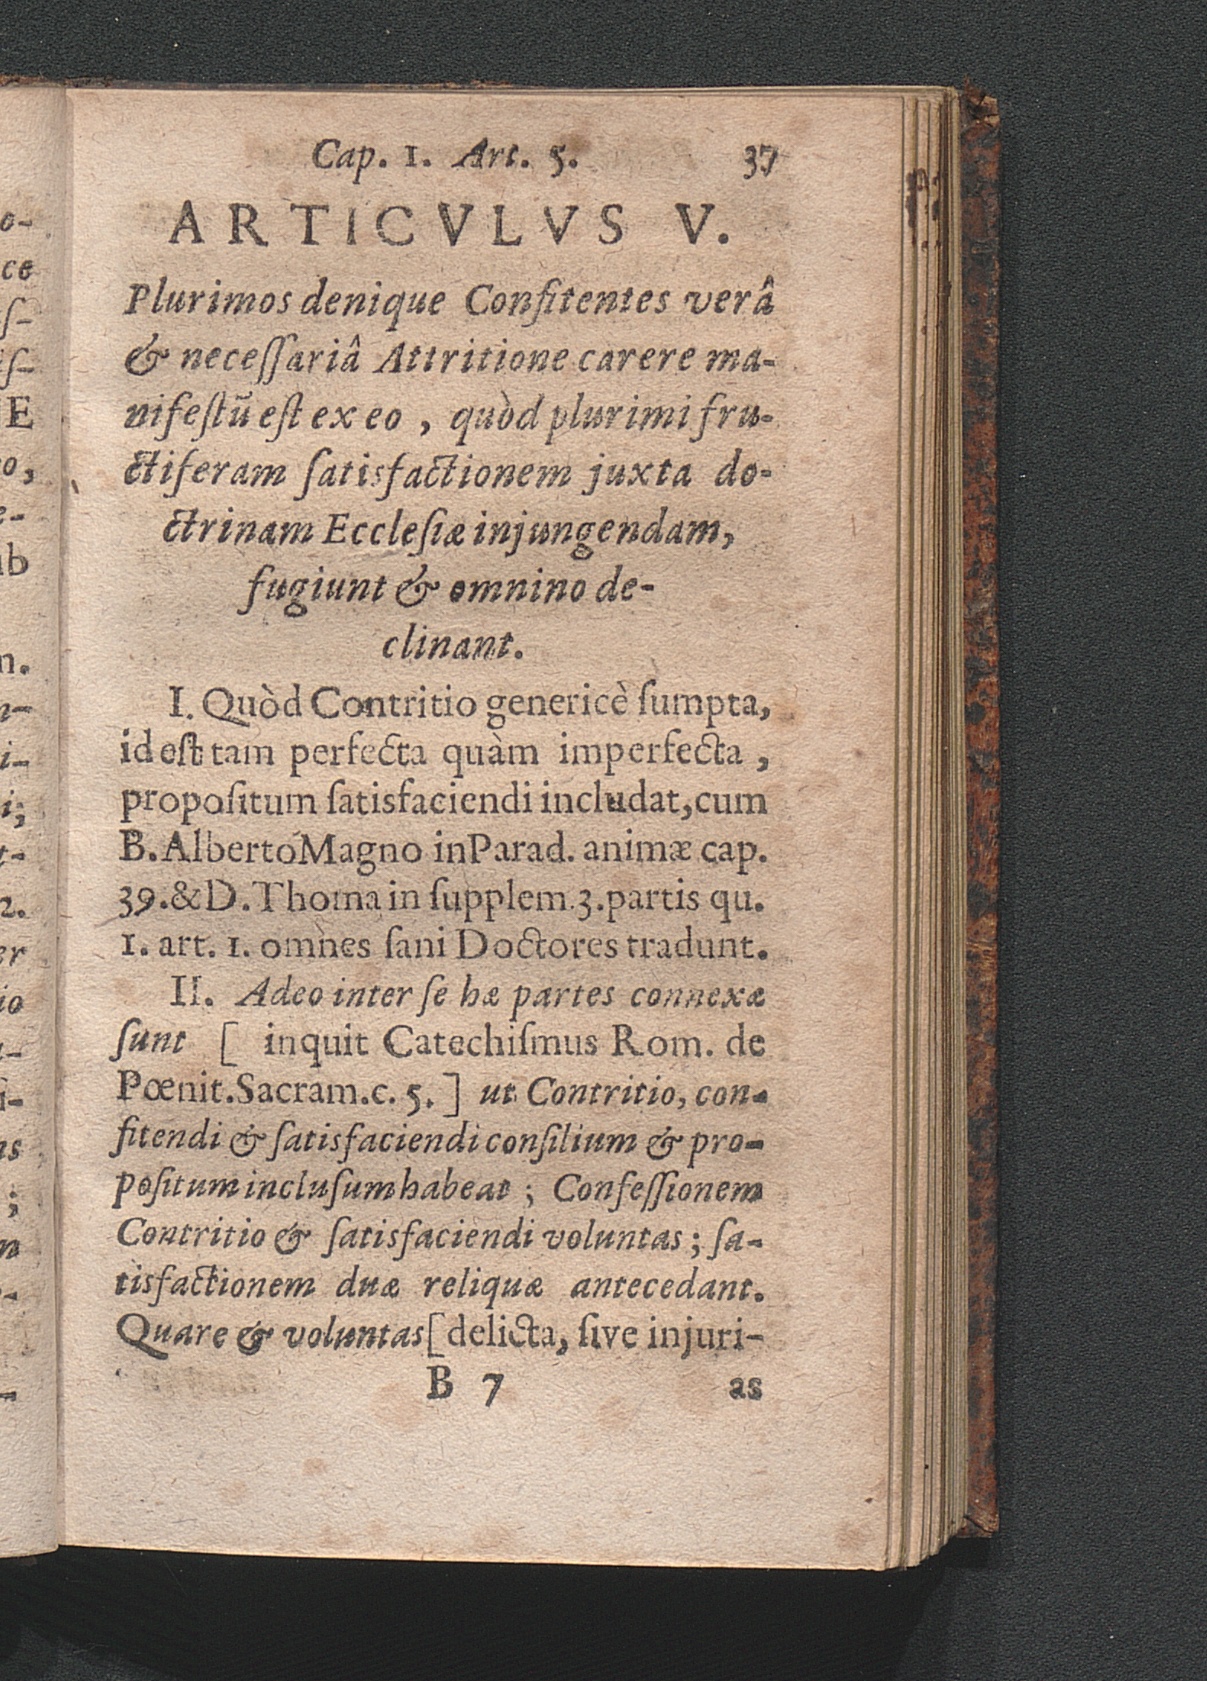 Cap. 1. Art. 5. 37
ARTICVLVS V.
Plurimos denique Confitentes verâ
& neceſſariâ Attritione carere ma-
nifeſtũ eſt ex eo, quòd plurimi fru-
ctiferam ſatisfactionem juxta do-
ctrinam Eccleſiæ injungendam,
fugiunt & omnino de-
clinant.
I. Quòd Contritio genericè ſumpta,
id eſt tam perfecta quàm imperfecta,
propoſitum ſatisfaciendi includat, cum
B. Alberto Magno in Parad. animæ cap.
39. & D. Thoma in ſupplem. 3. partis qu.
1. art. 1. omnes ſani Doctores tradunt.
II. Adeo inter ſe hæ partes connexæ
ſunt [ inquit Catechiſmus Rom. de
Pœnit. Sacram. c. 5. ] ut Contritio, con-
fitendi & ſatisfaciendi conſilium & pro-
poſitum incluſum habeat ; Confeſſionem
Contritio & ſatisfaciendi voluntas ; ſa-
tisfactionem duæ reliquæ antecedant.
Quare & voluntas [ delicta, ſive injuri-
B 7 as